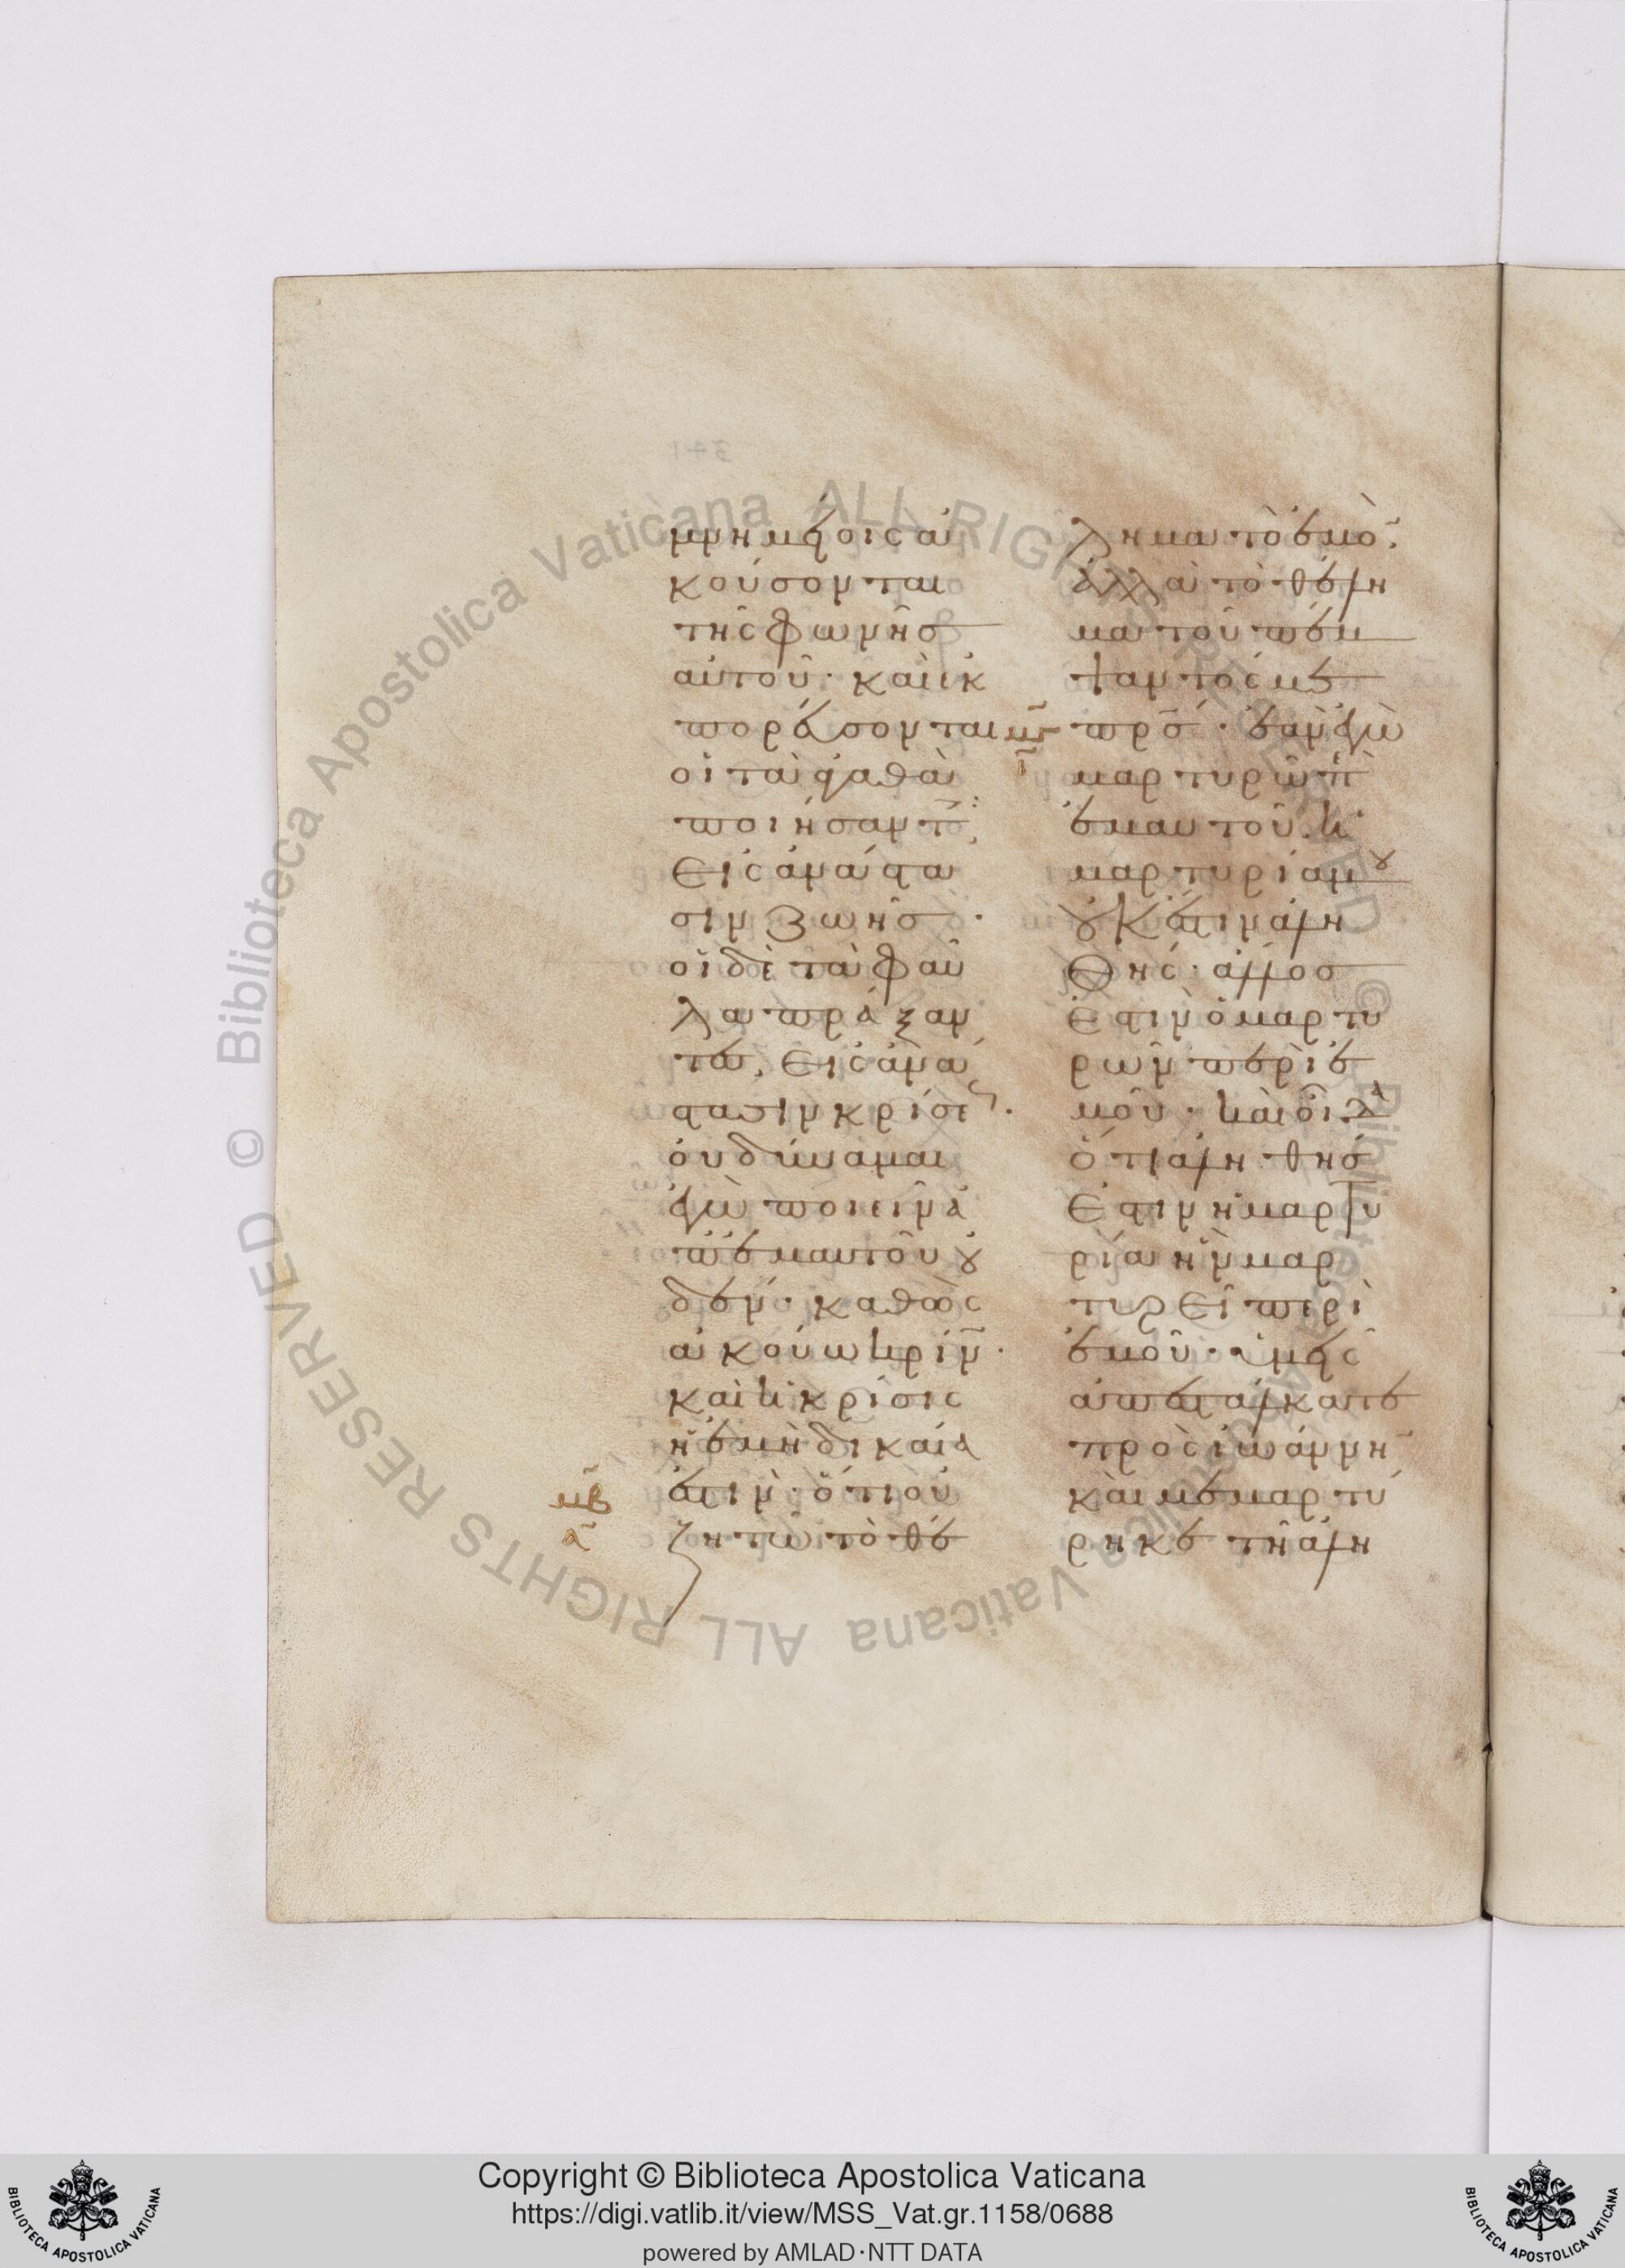 μνημείοις ἀ
κούσονται
τῆς φωνῆσ
αὐτοῦ· καὶ ἐκ
πορεύσονται
οἱ τὰ ἀγαθὰ
ποιήσαντ
εἰς ἀνάστα
σιν ζωῆσ·
οἱ δὲ τὰ φαῦ
λα πράξαν
τες, εἰς ἀνά
στασιν κρίσε·
οὐ δύναμαι
ἐγὼ ποιεῖν ἀ
π ἐμαυτοῦ ου
δέν· καθὼς
ἀκούω κρίν·
καὶ ἡ κρίσις
ἡ ἐμὴ δικαία
μβ ἐστὶν· ὅτι οὐ
α ζητῶ τὸ θέ
λημα τὸ ἐμὸ·
ἀλλὰ τὸ θέλη
μα τοῦ πέμ
ψαντός με
μγ πρσ· ἐὰν ἐγὼ
ι μαρτυρῶ π
ἐμαυτοῦ. ἡ
μαρτυρία μου
οὐκ ἔστιν ἀλη
θής· ἄλλοσ
ἐστὶν ὁ μαρτυ
ρῶν περὶ ἐ
μοῦ· καὶ οἶδα
ὅτι ἀληθήσ
ἐστιν ἡ μαρτυ
ρία ἣν μαρ
τυρεῖ περὶ
ἐμοῦ· ὑμεῖς
ἀπεστάλκατε
πρὸς ἰωάννη
καὶ μεμαρτύ
ρηκε τῆ ἀλη
Copyright © Biblioteca Apostolica Vaticana
https://digi.vatlib.it/view/MSS_Vat.gr.1158/0688
powered by AMLAD·NTT DATA
BIBLIOTECA APOSTOLICA VATICANA
BIBLIOTECA APOSTOLICA VATICANA
© Biblioteca Apostolica Vaticana ALL RIGHTS RESERVED © Biblioteca Apostolica Vaticana ALL RIGHTS RESERVED